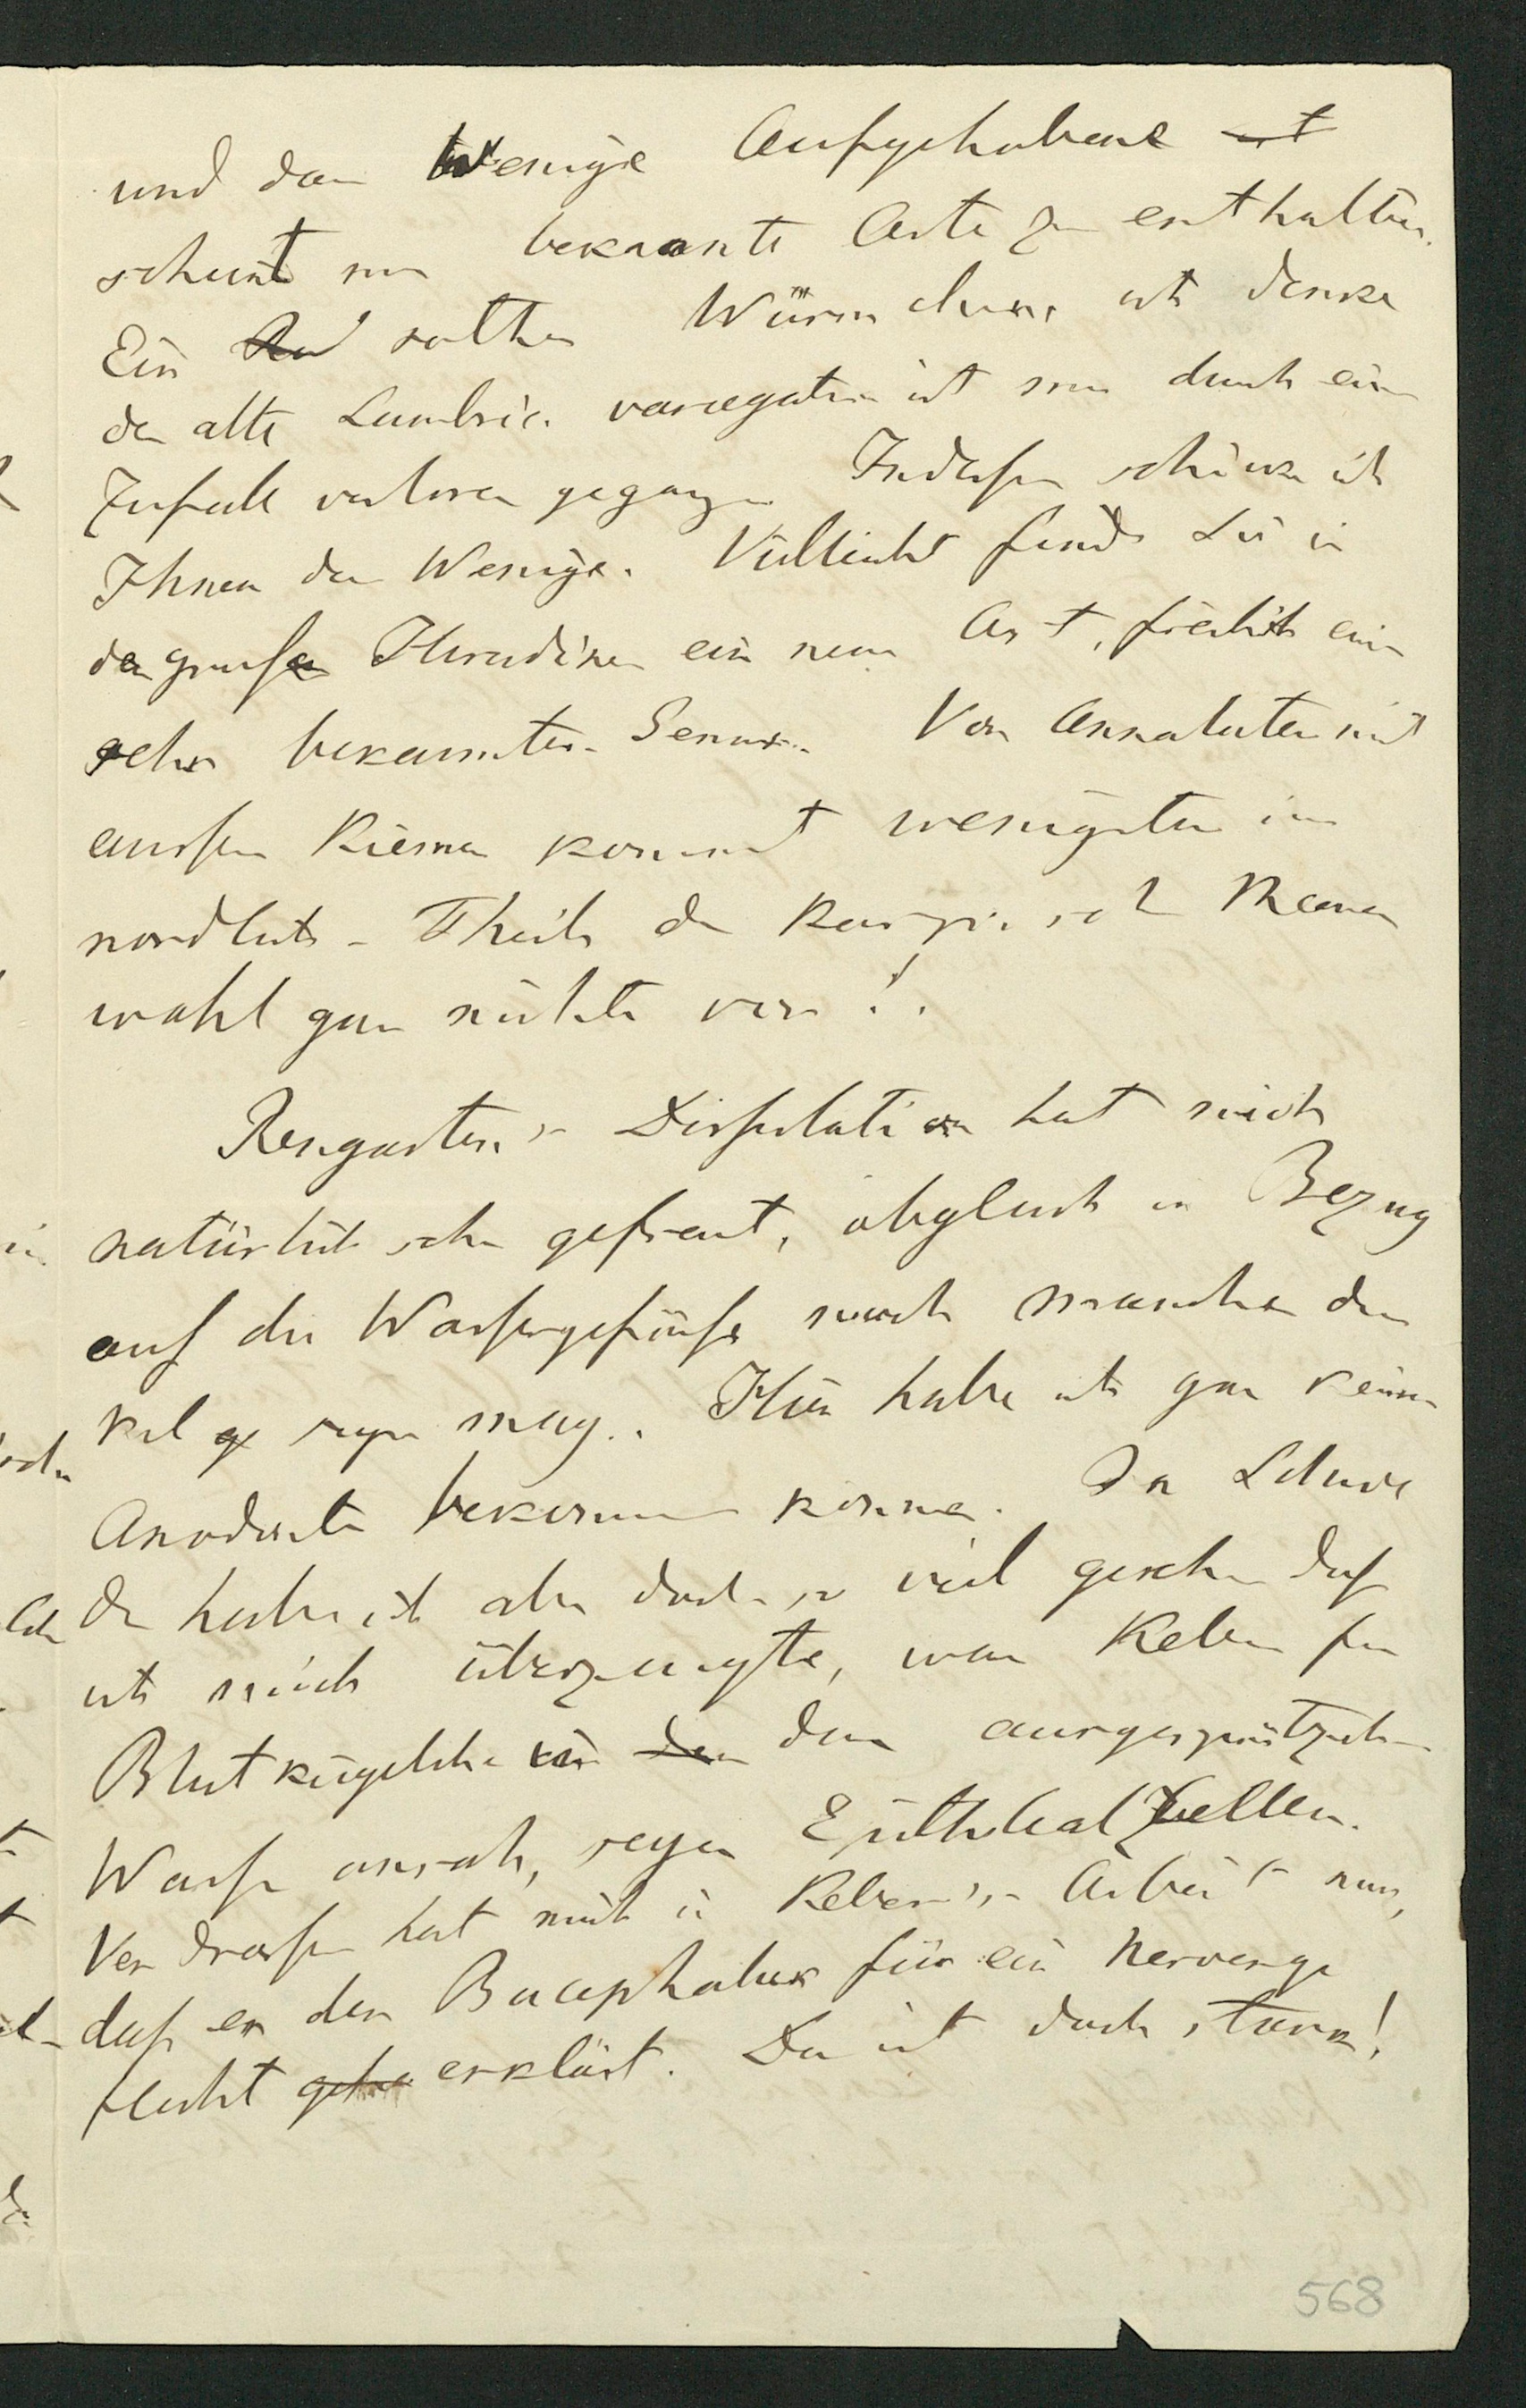 und das Wenige Aufgehobene ist
scheint nur bekannte Arten zu enthalten.
Ein solches Würmchen, ich denke
der alte Lumbric. variegatus ist mir durch einen
Zufall verloren gegangen. Indessen schicke ich
Ihnen das Wenige. Vielleicht finden Sie in
der grossen Hirudinee ein neue Art, freilich eines
sehr bekannten Genus. Von Annulaten mit
äussern Kiemen kommt wenigstens im
nordlichen Theile des Kaspischen Meeres
wohl gar nichts vor!.
Rengarten's Dissertation hat mich
natürlich sehr gefreut, obgleich in Bezug
auf die Wassergefässe noch manches dun
kel seyn mag. Hier habe ich gar keine
Anodonten bekommen können. In Schwe
den habe ich aber doch so viel gesehen dass
ich mich überzeugte, was Keber für
Blutkügelchen in dem ausgespritzten
Wasser ansah, seyen Epithelialzellen.
Verdrossen hat mich in Keber's Arbeit nur,
dass er den Bucephalus für ein Nervenge
flecht erklärt. Das ist doch stark!
568